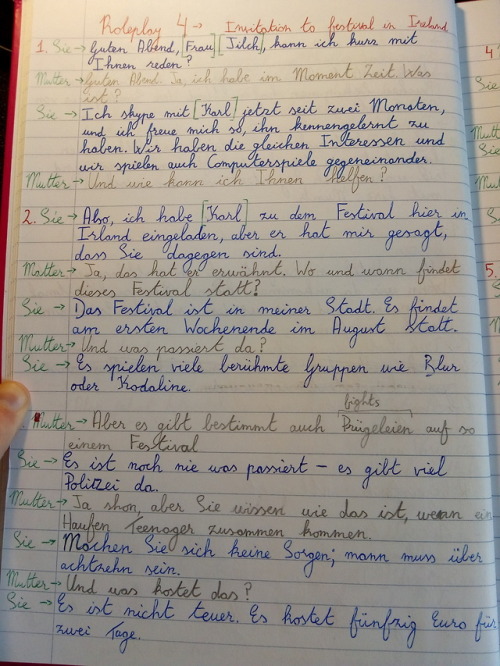 Roleplay 4 → Invitation to festival in Ireland
1. Sie → Guten Abend, [Frau] [Jilch], kann ich kurz mit
Ihnen reden?
Mutter → Guten Abend. Ja, ich habe im Moment Zeit. Was
ist?
Sie → Ich skype mit [Karl] jetzt seit zwei Monaten,
und ich freue mich so, ihn kennengelernt zu
haben. Wir haben die gleichen Interessen und
wir spielen auch Computerspiele gegeneinander.
Mutter → Und wie kann ich Ihnen helfen?
2. Sie → Also, ich habe [Karl] zu dem Festival hier in
Irland eingeladen, aber er hat mir gesagt,
dass Sie dagegen sind.
Mutter → Ja, das hat er erwähnt. Wo und wann findet
dieses Festival statt?
Sie → Das Festival ist in meiner Stadt. Es findet
am ersten Wochenende im August statt.
Mutter → Und was passiert da?
Sie → Es spielen viele berühmte Gruppen wie Blur
oder Kodaline.
fights
Mutter → Aber es gibt bestimmt auch Prügeleien auf so
einem Festival
Sie → Es ist noch nie was passiert – es gibt viel
Politzei da.
Mutter → Ja shon, aber Sie wissen wie das ist, wenn ein
Haufen Teenager zusammen kommen.
Sie → Machen Sie sich keine Sorgen; mann muss über
achtzehn sein.
Mutter → Und was kostet das?
Sie → Es ist nicht teuer. Es kostet fünfzig Euro für
zwei Tage.
4
Sie
Mutt
Sie
Mu
5.